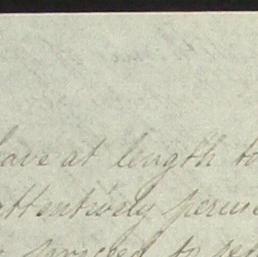 have at length to
attentively perus
proceed to